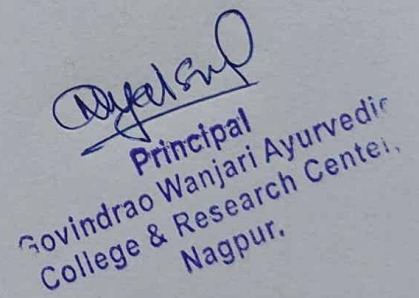 Principal
Govindrao Wanjari Ayurvedic
College & Research Center,
Nagpur.